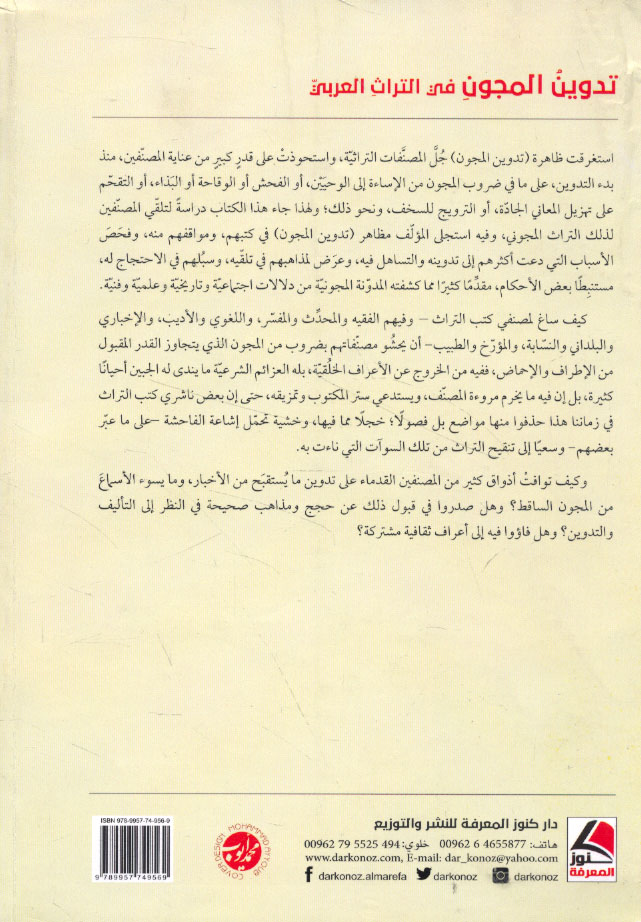 تدوينُ المجونِ في التراثِ العربيّ
استغرقت ظاهرة (تدوين المجون) جُلَّ المصنَّفات التراثيّة، واستحوذتْ على قدرٍ كبيرٍ من عناية المصنّفين، منذ
بدء التدوين، على ما في ضروب المجون من الإساءة إلى الوحيَيْن، أو الفحش أو الوقاحة أو البَذاء، أو التقحّم
على تهزيل المعاني الجادّة، أو الترويج للسخف، ونحو ذلك؛ ولهذا جاء هذا الكتاب دراسةً لتلقّي المصنّفين
لذلك التراث المجوني، وفيه استجلى المؤلّف مظاهر (تدوين المجون) في كتبهم، ومواقفهم منه، وفحَصَ
الأسباب التي دعت أكثرهم إلى تدوينه والتساهل فيه، وعرَض لمذاهبهم في تلقّيه، وسبُلهم في الاحتجاج له،
مستنبِطًا بعض الأحكام، مقدِّمًا كثيرًا مما كشفته المدوّنة المجونيّة من دلالات اجتماعيّة وتاريخيّة وعلميّة وفنيّة.
كيف ساغ لمصنفي كتب التراث – وفيهم الفقيه والمحدِّث والمفسّر، واللغوي والأديب، والإخباري
والبلداني والنسّابة، والمؤرّخ والطبيب- أن يحشُو مصنّفاتهم بضروب من المجون الذي يتجاوز القدر المقبول
من الإطراف والإحماض، ففيه من الخروج عن الأعراف الخلُقيّة، بله العزائم الشرعيّة ما يندى له الجبين أحيانًا
كثيرة، بل إن فيه ما يخرم مروءة المصنّف، ويستدعي ستر المكتوب وتمزيقه، حتى إن بعض ناشري كتب التراث
في زماننا هذا حذفوا منها مواضع بل فصولًا؛ خجلًا مما فيها، وخشية تحمّل إشاعة الفاحشة –على ما عبّر
بعضهم– وسعيًا إلى تنقيح التراث من تلك السوآت التي ناءت به.
وكيف توافقتْ أذواق كثير من المصنفين القدماء على تدوين ما يُستقبَح من الأخبار، وما يسوء الأسماعَ
من المجون الساقط؟ وهل صدروا في قبول ذلك عن حجج ومذاهب صحيحة في النظر إلى التأليف
والتدوين؟ وهل فاؤوا فيه إلى أعراف ثقافية مشتركة؟
كنوز
المعرفة
دار كنوز المعرفة للنشر والتوزيع
هاتف: 00962 6 4655877 خلوي: 00962 79 5525 494
www.darkonoz.com, E-mail: dar_konoz@yahoo.com
darkonoz.almarefa darkonoz darkonoz
COVER DESIGN MOHAMMAD AYYOUB
ISBN 978-9957-74-956-9
9 789957 749569